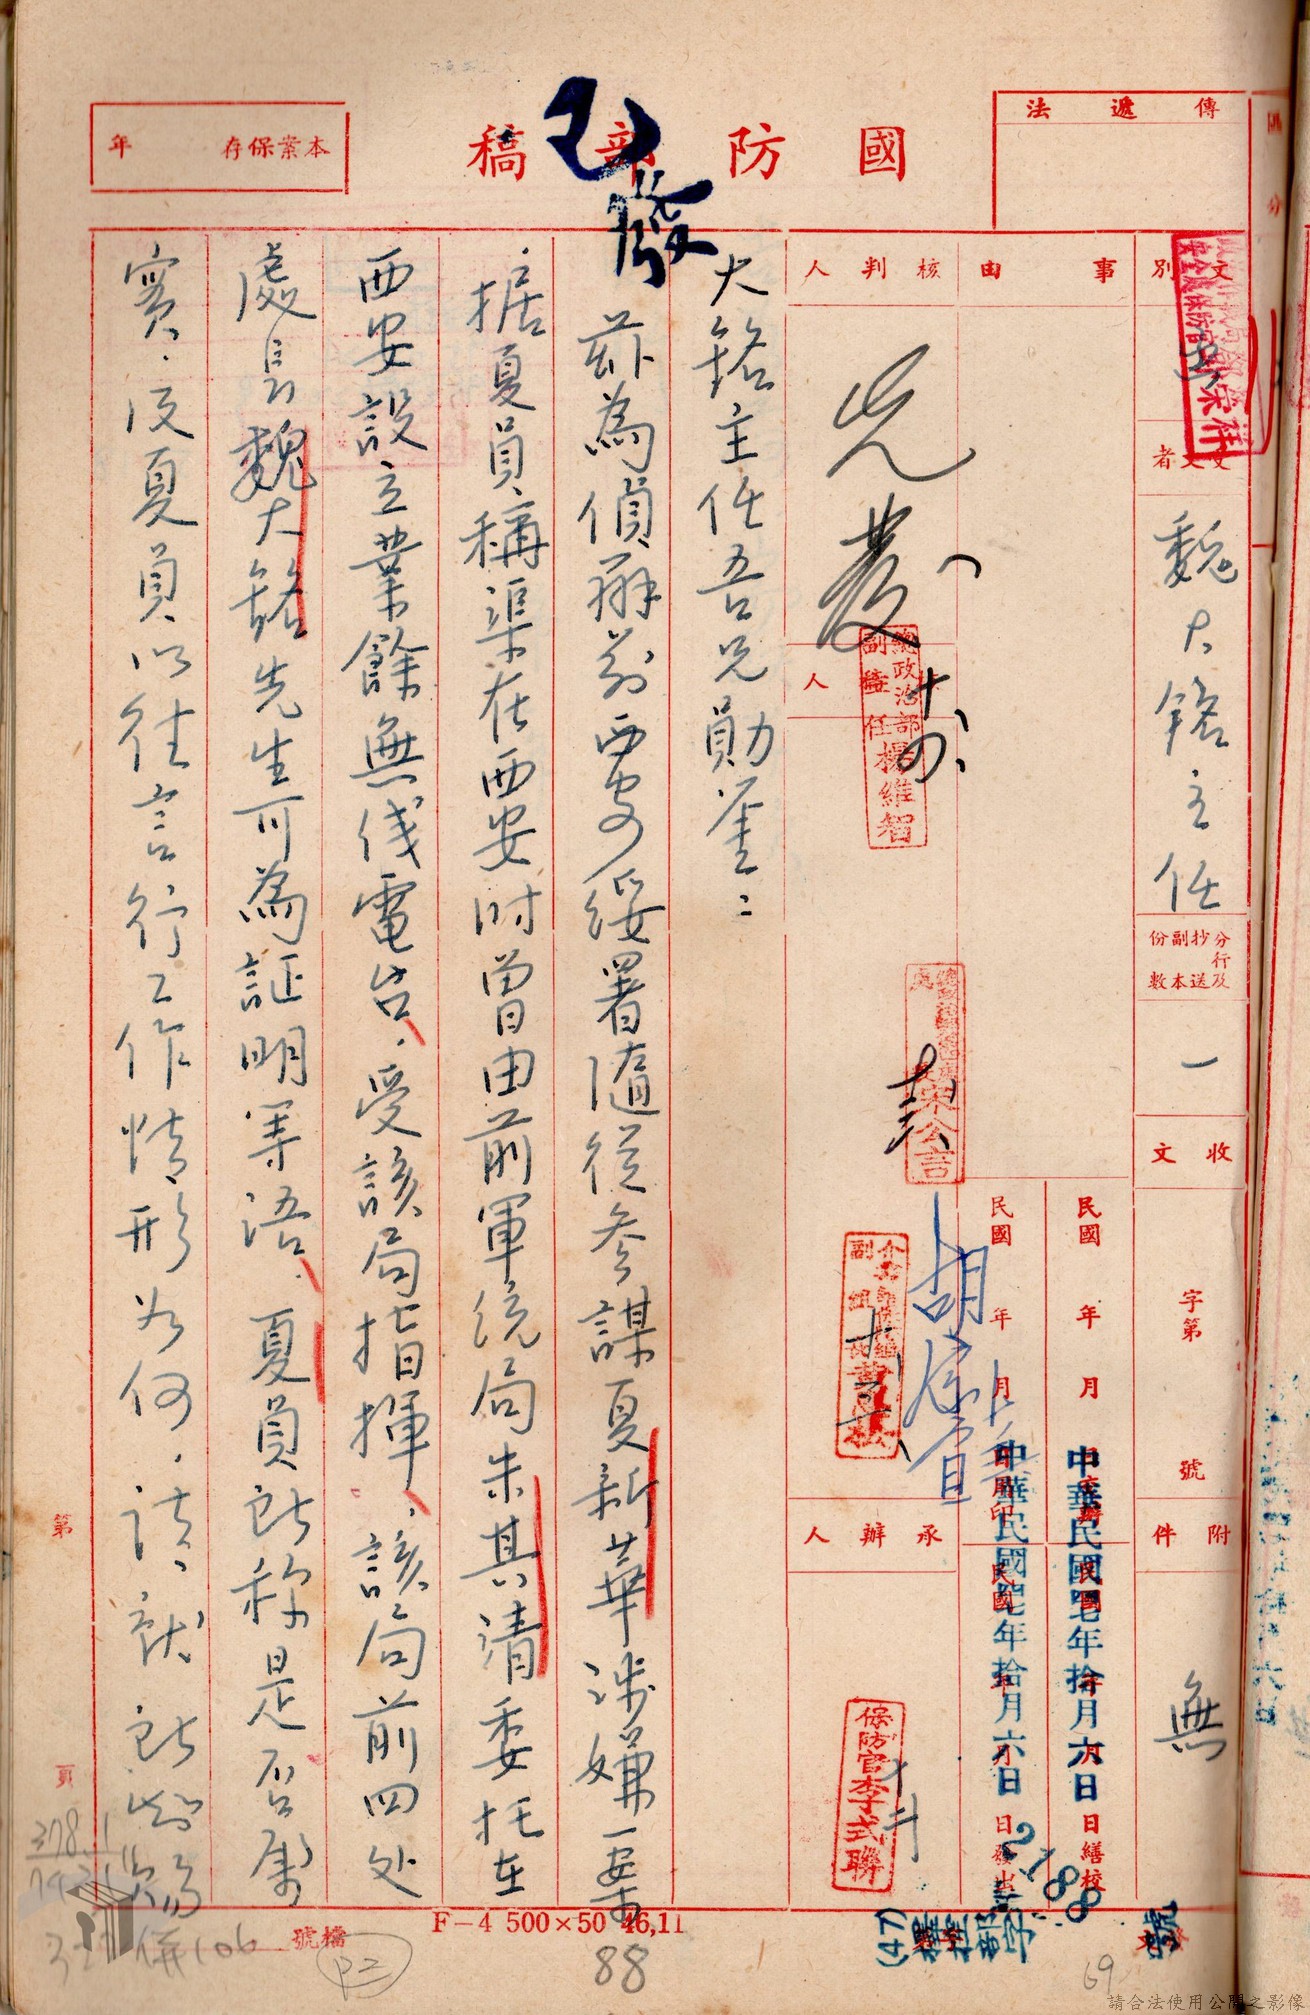 國防部稿
傳遞法
本案保存 年
文別
受文者
魏大銘主任
分行及抄送副本份數
一
收文
字第 號
附件
無
事由
民國 年 月 日
中華民國四七年拾月六日
中華民國四七年拾月六日
核判人
先發
總政治部副主任楊維智
胡
承辦人
保防官李式聯
已發
大銘主任吾兄勛鑒：
茲為偵辦前西安綏署隨從參謀夏新華涉嫌一案
据夏員稱渠在西安時曾由前軍統局朱其清委托在
西安設立業餘無綫電台，受該局指揮，該局前四处
處長魏大銘先生可為証明等语，夏員所称是否属
實，及夏員以往言行工作情形为何，请就所知賜
第 頁
檔號
F－4 500×50 46,11
(47)
2188
號
88
69
106
請合法使用公開之影像